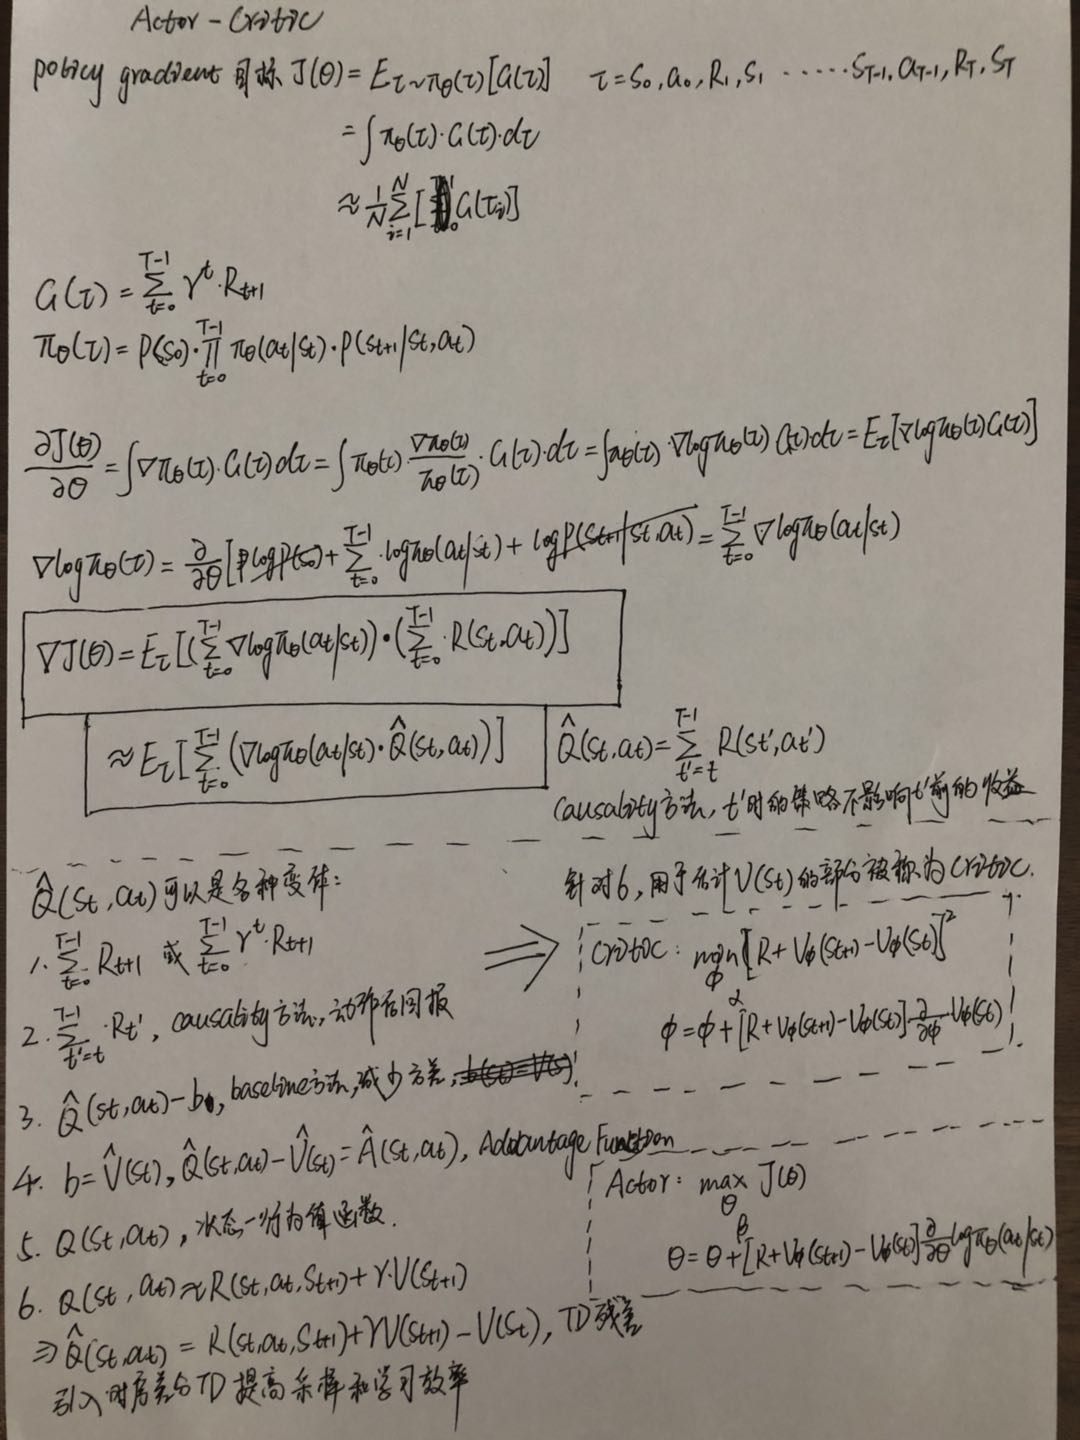 Actor-Critic
policy gradient 目标 J(θ) = E_{τ~π_θ(τ)}[G(τ)]  τ = S_0, a_0, R_1, S_1 ······ S_{T-1}, a_{T-1}, R_T, S_T
= ∫π_θ(τ)·G(τ)·dτ
≈ 1/N Σ_{i=1}^{N} [G(τ_i)]
G(τ) = Σ_{t=0}^{T-1} γ^t·R_{t+1}
π_θ(τ) = P(s_0)·Π_{t=0}^{T-1} π_θ(a_t|s_t)·P(s_{t+1}|s_t,a_t)
∂J(θ)/∂θ = ∫∇π_θ(τ)·G(τ)dτ = ∫π_θ(τ)·∇π_θ(τ)/π_θ(τ)·G(τ)·dτ = ∫π_θ(τ)·∇logπ_θ(τ) G(τ)dτ = E_τ[∇logπ_θ(τ)G(τ)]
∇logπ_θ(τ) = ∂/∂θ[logP(s_0) + Σ_{t=0}^{T-1}·logπ_θ(a_t|s_t) + logP(s_{t+1}|s_t,a_t) = Σ_{t=0}^{T-1} ∇logπ_θ(a_t|s_t)
∇J(θ) = E_τ[(Σ_{t=0}^{T-1} ∇logπ_θ(a_t|s_t))·(Σ_{t=0}^{T-1}·R(s_t,a_t))]
≈ E_τ[Σ_{t=0}^{T-1}(∇logπ_θ(a_t|s_t)·Q̂(s_t,a_t))]  Q̂(s_t,a_t) = Σ_{t'=t}^{T-1} R(s_t',a_t')
causality方法, t'时的策略不影响t'前的收益
Q̂(s_t,a_t)可以是各种变体:
1. Σ_{t=0}^{T-1} R_{t+1} 或 Σ_{t=0}^{T-1} γ^t·R_{t+1}
2. Σ_{t'=t}^{T-1}·R_t', causality方法, 动作后回报
3. Q̂(s_t,a_t)-b, baseline方法, 减少方差, b(s_t)=V(s)
4. b=V̂(s_t), Q̂(s_t,a_t)-V̂(s_t)=Â(s_t,a_t), Advantage Function
5. Q(s_t,a_t), 状态-行为值函数.
6. Q(s_t,a_t)≈R(s_t,a_t,s_{t+1})+γ·V(s_{t+1})
⇒ Q̂(s_t,a_t) = R(s_t,a_t,s_{t+1})+γV(s_{t+1})-V(s_t), TD残差
引入时序差分TD提高采样和学习效率
针对6, 用于估计V(s_t)的部分被称为Critic.
⇒ Critic: min_φ [R+V_φ(s_{t+1})-V_φ(s_t)]^2
φ = φ + α[R+V_φ(s_{t+1})-V_φ(s_t)]·∂/∂φ V_φ(s_t)
Actor: max_θ J(θ)
θ = θ + β[R+V_φ(s_{t+1})-V_φ(s_t)]∂/∂θ logπ_θ(a_t|s_t)